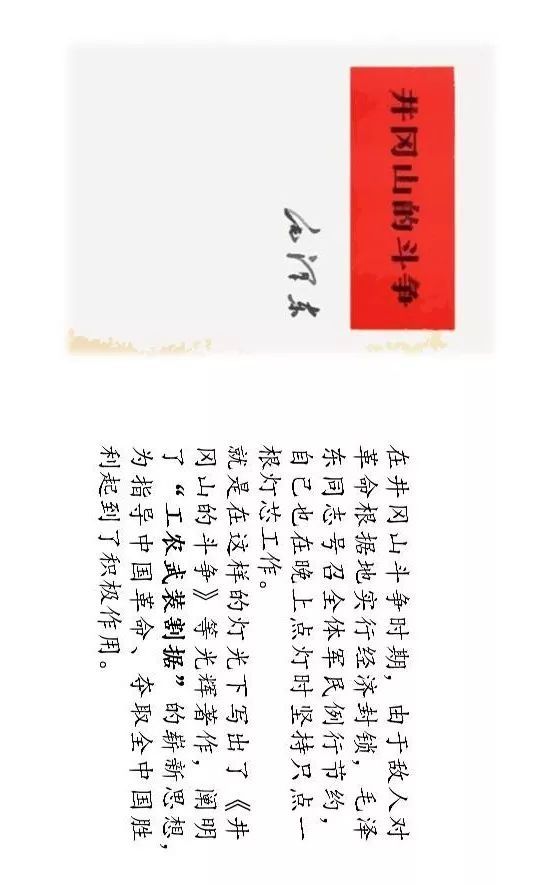 井冈山的斗争
毛泽东
在井冈山斗争时期，由于敌人对
革命根据地实行经济封锁，毛泽
东同志号召全体军民例行节约，
自己也在晚上点灯时坚持只点一
根灯芯工作。
就是在这样的灯光下写出了《井
冈山的斗争》等光辉著作，阐明
了“工农武装割据”的崭新思想，
为指导中国革命、夺取全中国胜
利起到了积极作用。